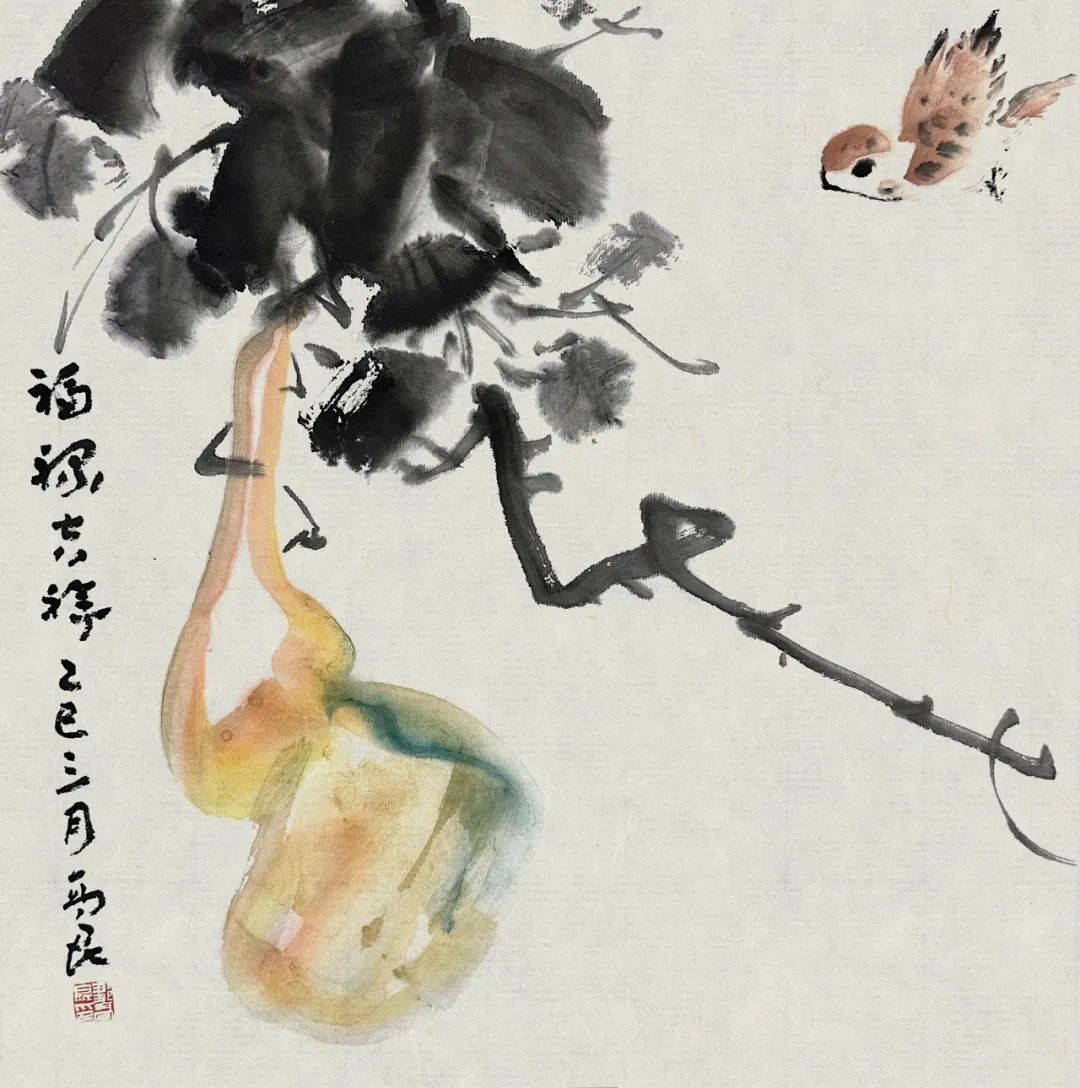 福禄吉祥乙巳三月